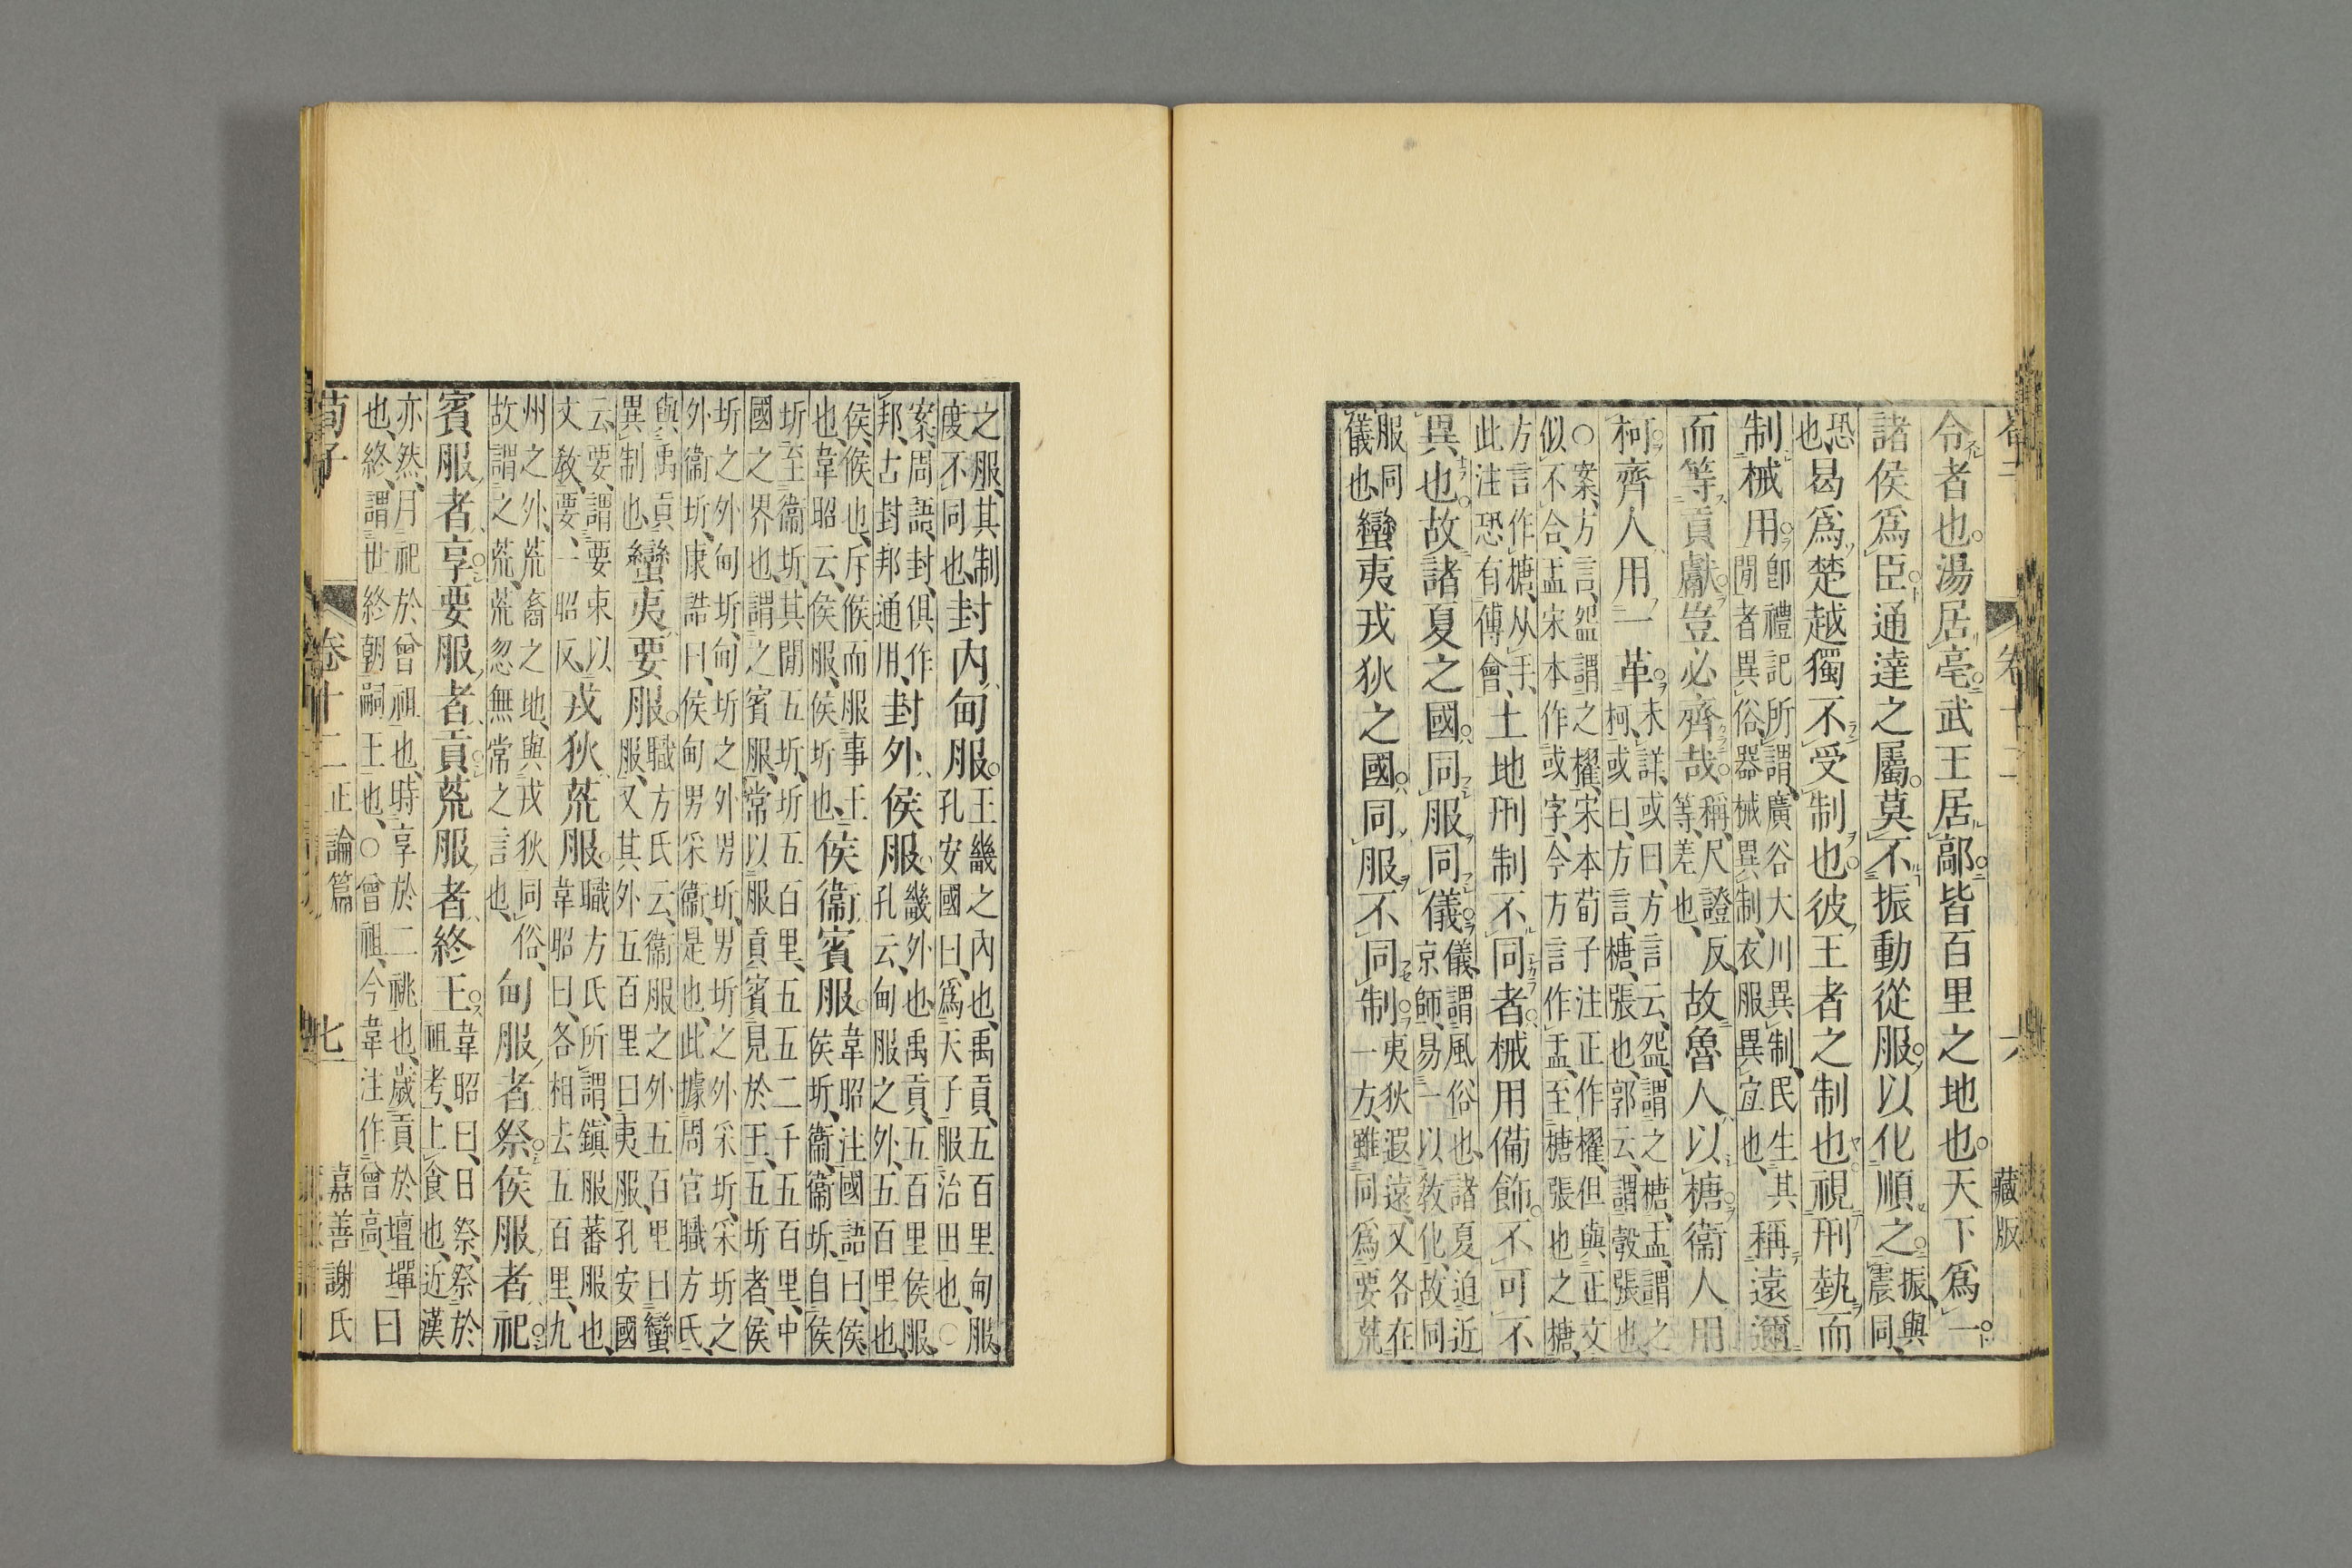 卷十二 六 藏版
令者也。湯居亳武王居鄗皆百里之地也。天下爲一
諸侯爲臣通達之屬。莫不振動從服以化順之振與
震同
恐
也曷爲楚越獨不受制也彼王者之制也視刑埶而
制械用卽禮記所謂、廣谷大川異制、民生其
閒者異俗、器械異制、衣服異宜也、稱遠邇
而等貢獻豈必齊哉。稱、尺證反、
等、差也、故魯人以榶衞人用
柯齊人用一革未詳、或曰、方言云、盌謂之榶、盂謂之
柯、或曰、方言、榶、張也、郭云、謂彀張也、
○案、方言、盌謂之櫂、宋本荀子注正作櫂、但與正文
似不合、盂宋本作或字、今方言作盂、至榶張也之榶、
方言作搪、从手、
此注恐有傅會、土地刑制不同者械用備飾。不可不
異也。故諸夏之國同服同儀儀、謂風俗也、諸夏迫近
京師、易一以敎化、故同
服同
儀也、蠻夷戎狄之國同服不同制夷狄遐遠、又各在
一方、雖同爲要荒
之服、其制
度不同也、封内甸服。王畿之內也、禹貢、五百里甸服、
孔安國曰、爲天子服治田也、○
案、周語、封俱作
邦、古封邦通用、封外侯服。畿外也、禹貢、五百里侯服、
孔云、甸服之外、五百里也、
侯、候也、斥候而服事王
也、韋昭云、侯服、侯圻也、侯衞賓服。韋昭注國語曰、侯、
侯圻、衞、衞圻、自侯
圻至衞圻、其閒五圻、圻五百里、五五二千五百里、中
國之界也、謂之賓服、常以服貢賓見於王、五圻者、侯
圻之外甸圻、甸圻之外男圻、男圻之外采圻、采圻之
外衞圻、康誥曰、侯甸男采衞、是也、此據周官職方氏、
與禹貢
異制也、蠻夷要服。職方氏云、衞服之外五百里曰蠻
服、又其外五百里曰夷服、孔安國
云、要、謂要束以
文敎、要、一昭反、戎狄荒服。職方氏所謂、鎭服蕃服也、
韋昭曰、各相去五百里、九
州之外、荒裔之地、與戎狄同俗、
故謂之荒、荒忽無常之言也、甸服者祭侯服者祀
賓服者享要服者貢荒服者終王韋昭曰、日祭、祭於
祖考、上食也、近漢
亦然、月祀於曾祖也、時享於二祧也、歲貢於壇墠
也、終、謂世終朝嗣王也、○曾祖、今韋注作曾高、日
荀子 卷十二正論篇 七 嘉善謝氏